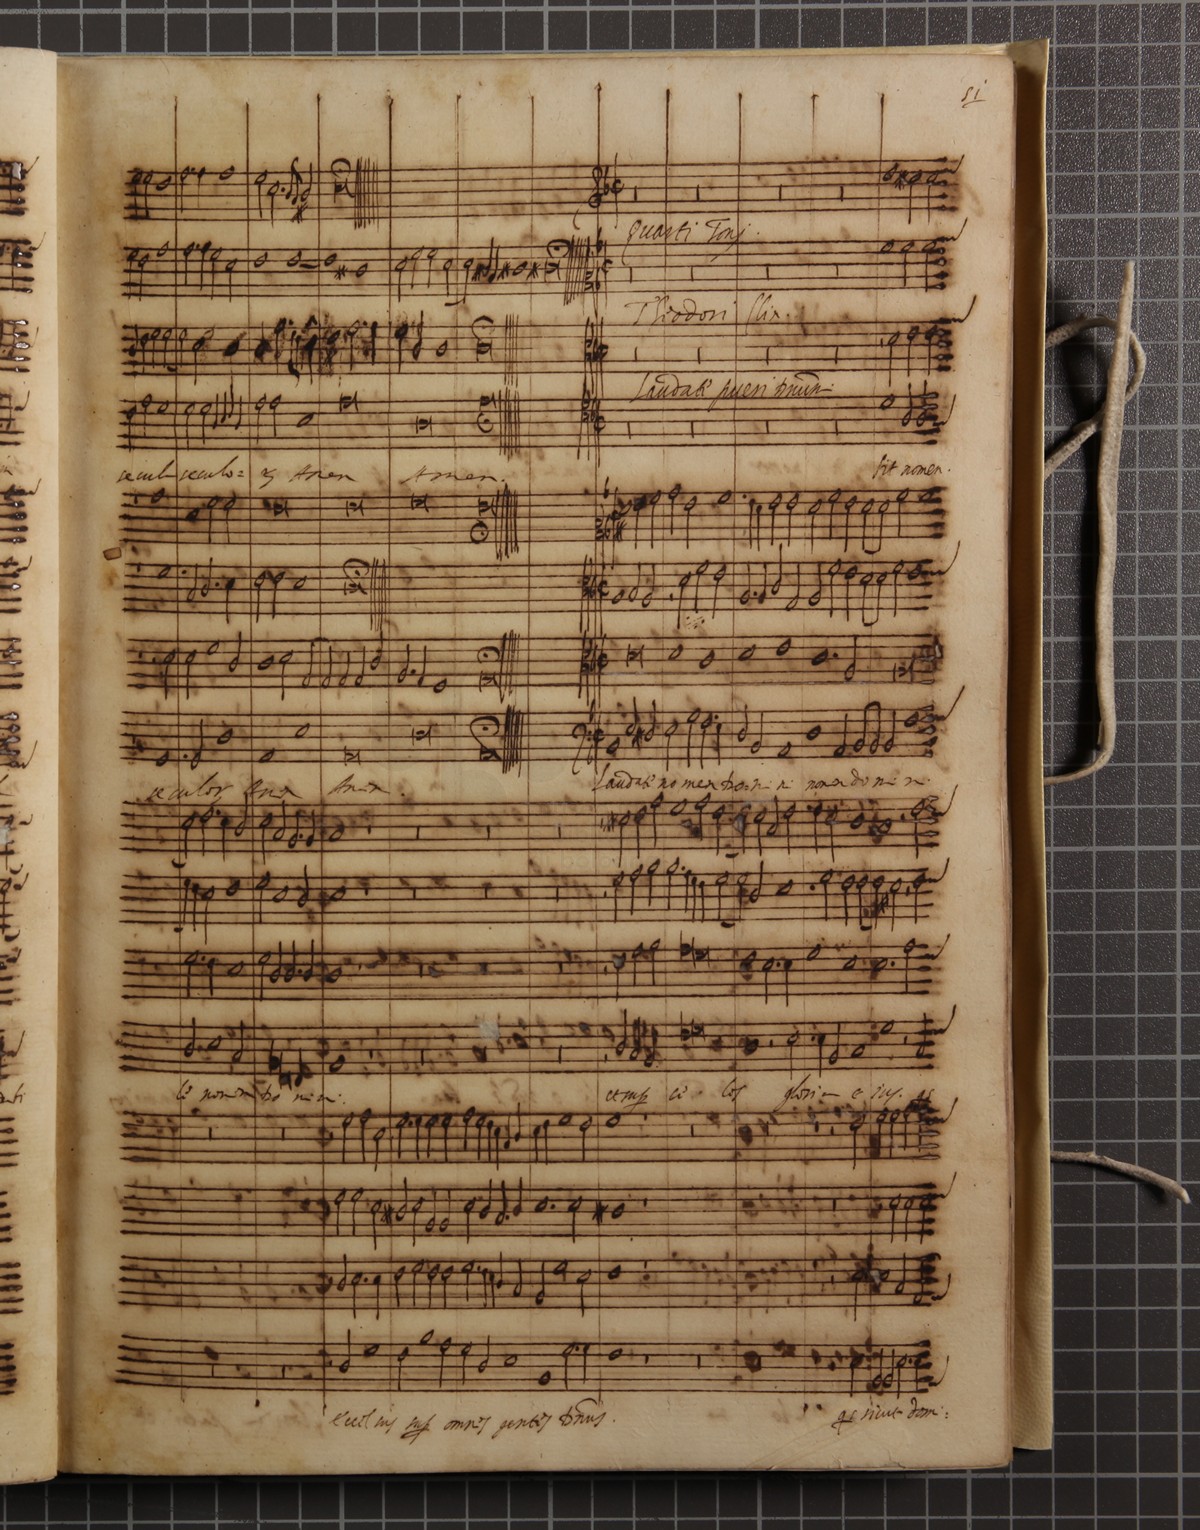 51
Quarti Toni.
Theodori Clin.
Laudate pueri dnum
secula seculo= rz Amen Amen.
sit nomen.
seculorz Amen Amen.
Laudate nomen domini nomen domini
te nomen domini.
et sup cę los gloria e ius.
Excelsus sup omnes gentes Dnus.
qs sicut dom: